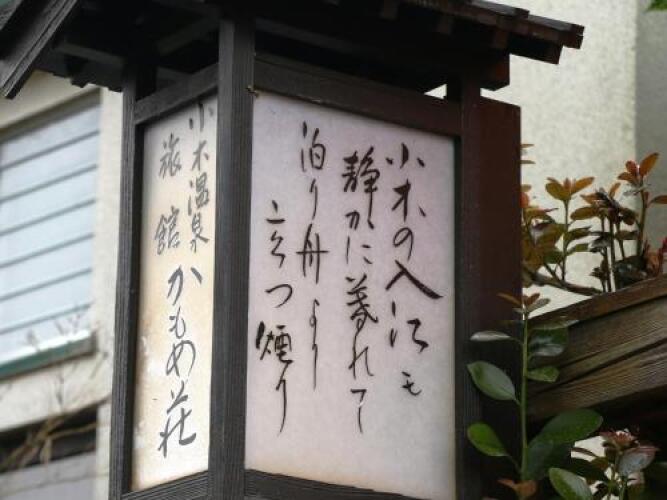 小木の入江も
静かに暮れて
泊り舟より
二つ煙り
小木温泉
旅館
かもめ荘